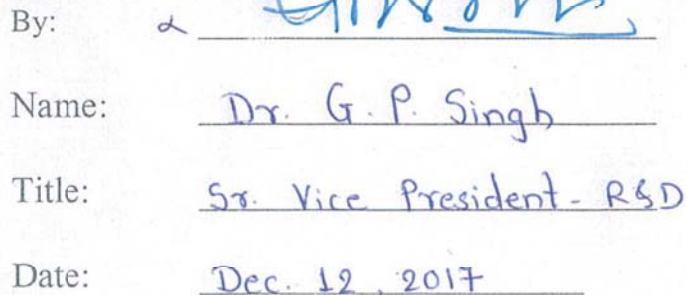 By:
Name: Dr. G. P. Singh
Title: Sr. Vice President - R&D
Date: Dec. 12, 2017